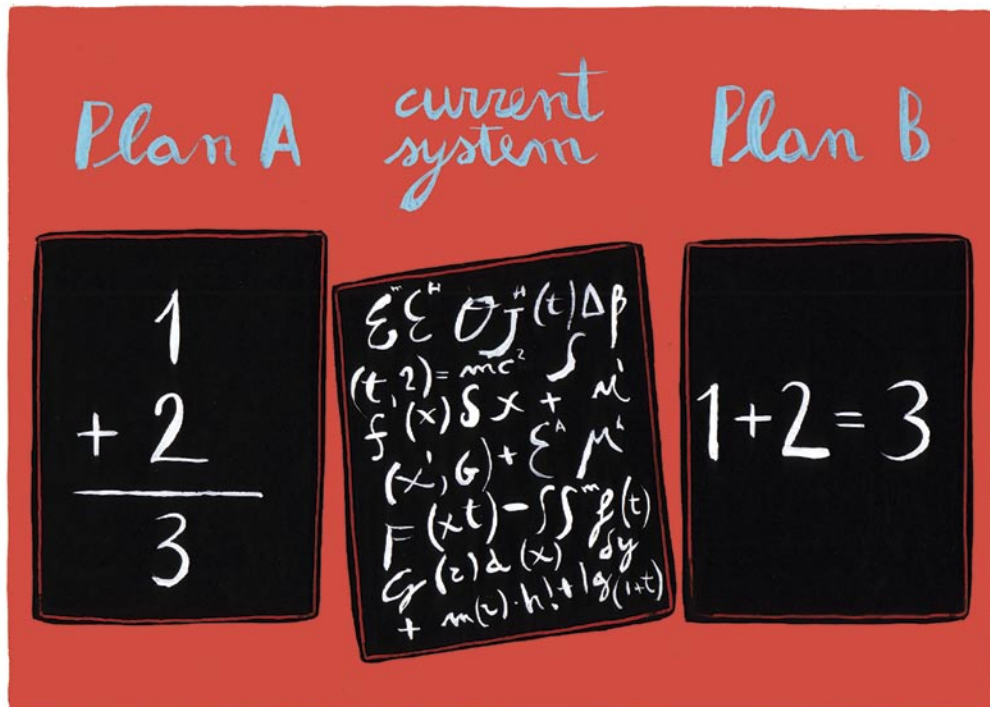 Plan A
current
system
Plan B
1
+ 2
3
Σᵐ Σᴴ σJᴴ(t)Δβ
(t, 2) = mc² ∫
f'(x) S x + μ'
(x', G) + Σᴬ μ'
F (xt) - ∫∫ᵐ f(t)
G (z) d (x) dy
+ m(2) · h! + lg(1+t)
1 + 2 = 3